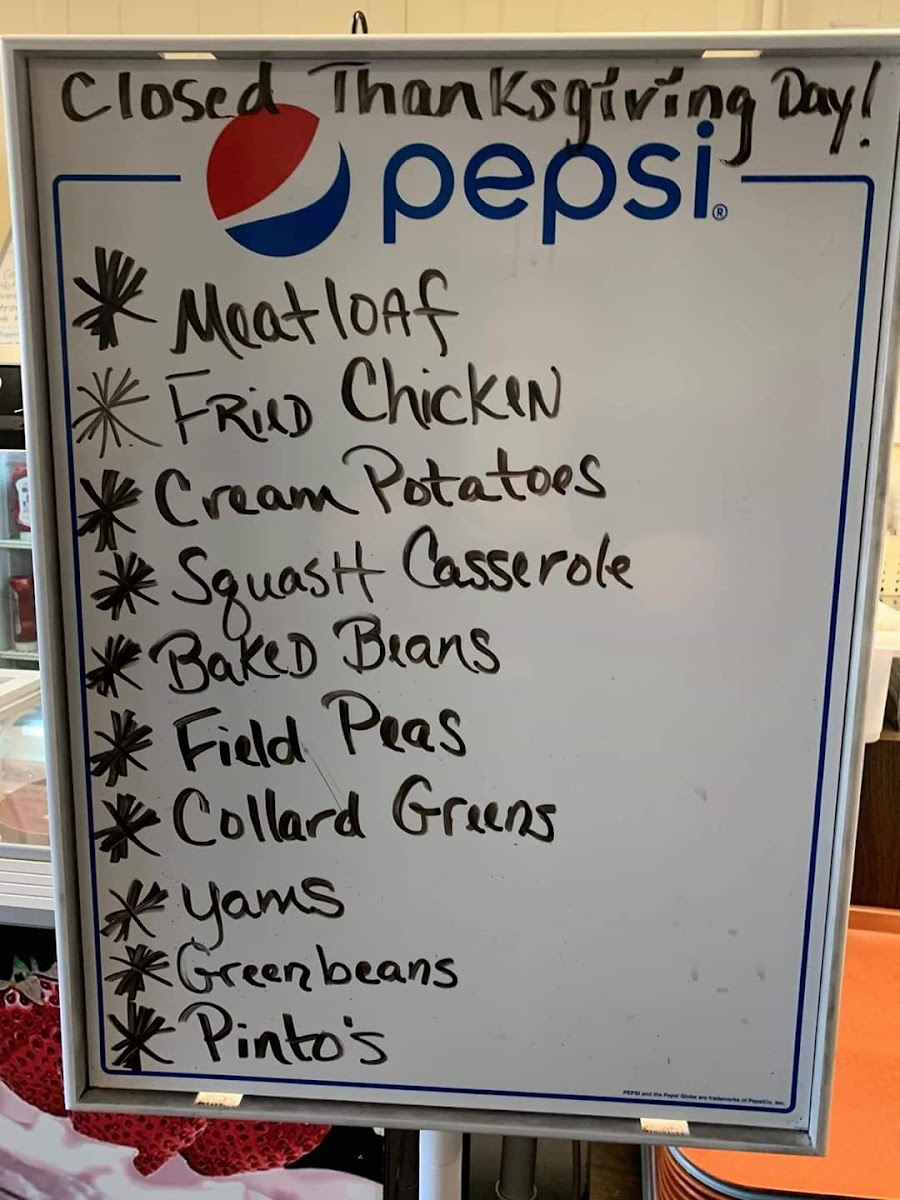 Closed Thanksgiving Day!
pepsi®
Meatloaf
Fried Chicken
Cream Potatoes
Squash Casserole
Baked Beans
Field Peas
Collard Greens
Yams
Greenbeans
Pinto's
PEPSI and the Pepsi Globe are trademarks of PepsiCo, Inc.